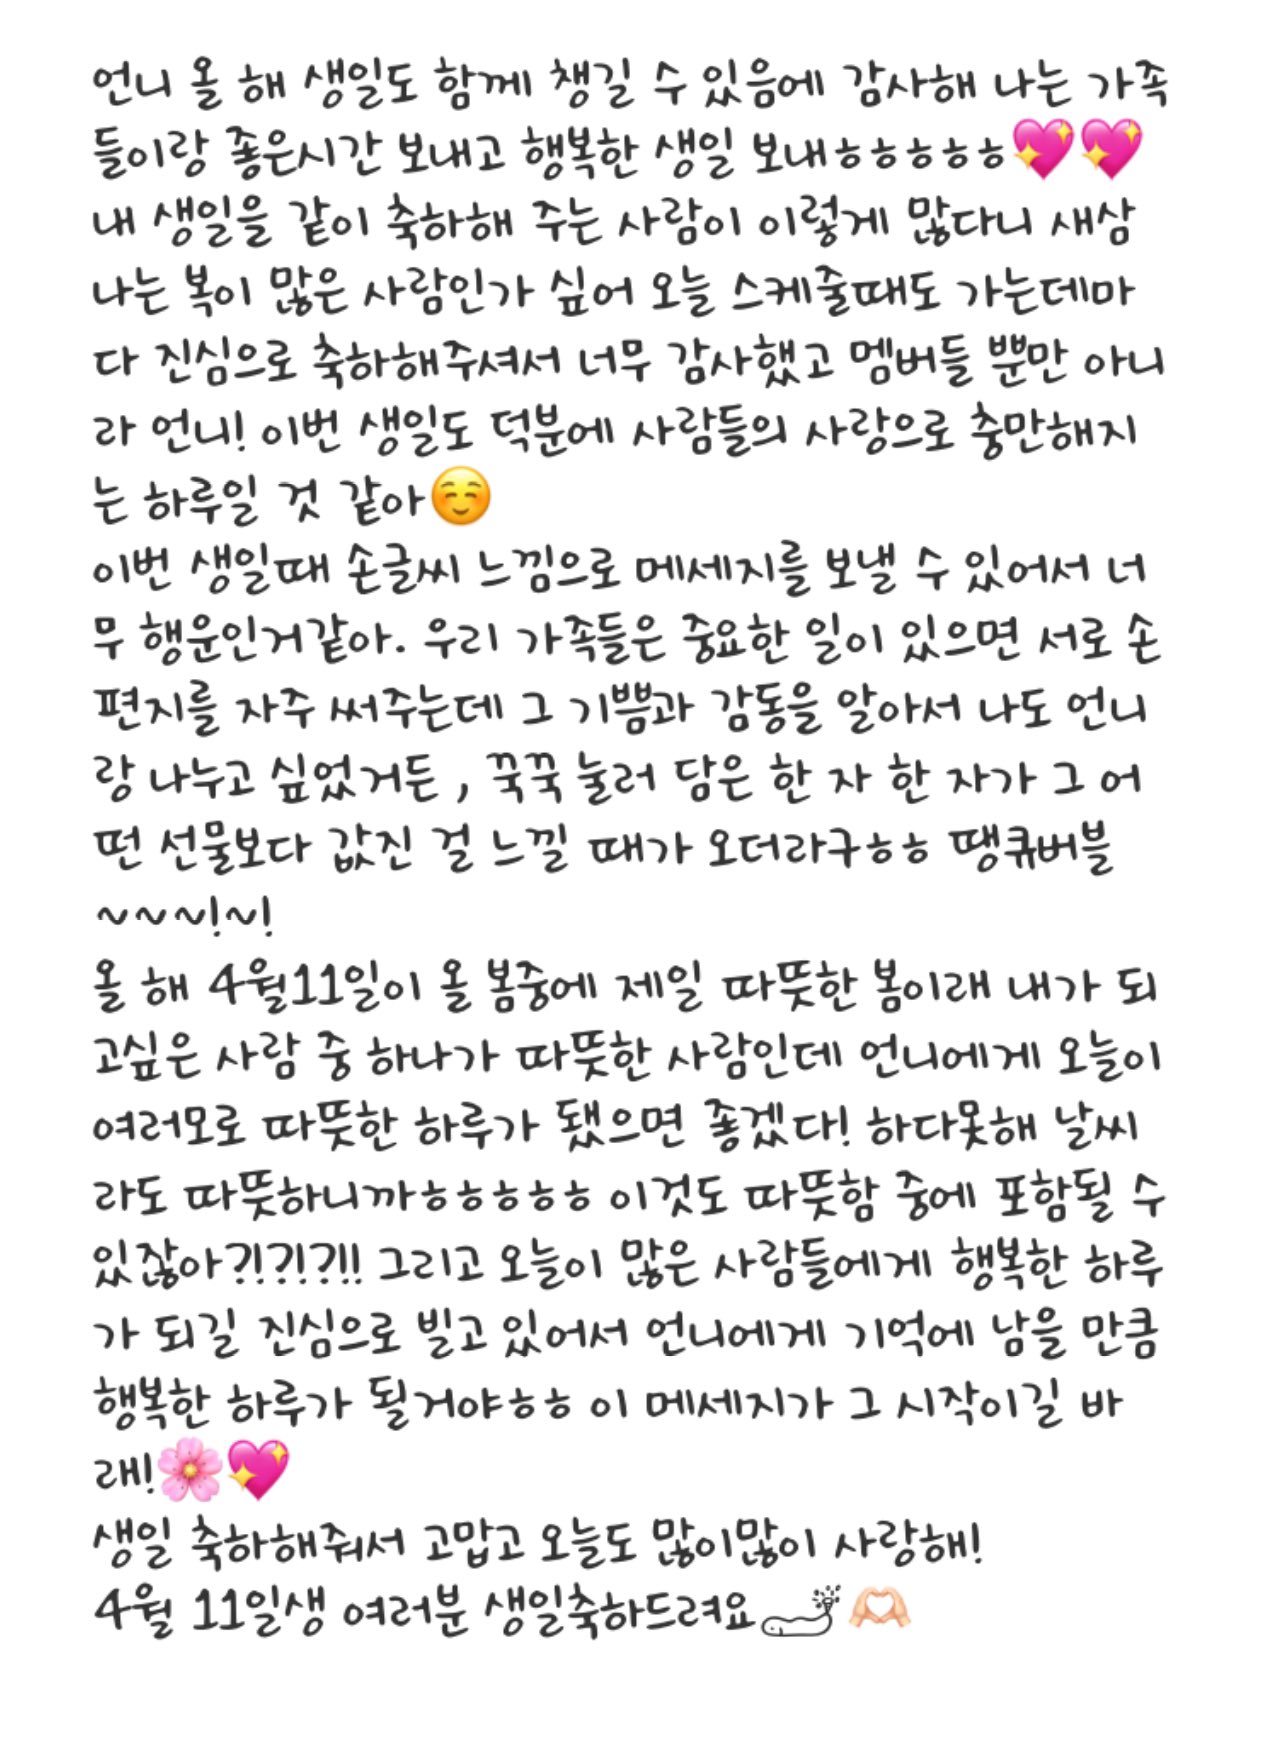 언니 올 해 생일도 함께 챙길 수 있음에 감사해 나는 가족
들이랑 좋은시간 보내고 행복한 생일 보내ㅎㅎㅎㅎㅎ💖💖
내 생일을 같이 축하해 주는 사람이 이렇게 많다니 새삼
나는 복이 많은 사람인가 싶어 오늘 스케줄때도 가는데마
다 진심으로 축하해주셔서 너무 감사했고 멤버들 뿐만 아니
라 언니! 이번 생일도 덕분에 사람들의 사랑으로 충만해지
는 하루일 것 같아☺️
이번 생일때 손글씨 느낌으로 메세지를 보낼 수 있어서 너
무 행운인거같아. 우리 가족들은 중요한 일이 있으면 서로 손
편지를 자주 써주는데 그 기쁨과 감동을 알아서 나도 언니
랑 나누고 싶었거든 , 꾹꾹 눌러 담은 한 자 한 자가 그 어
떤 선물보다 값진 걸 느낄 때가 오더라구ㅎㅎ 땡큐버블
~~~!~!
올 해 4월11일이 올 봄중에 제일 따뜻한 봄이래 내가 되
고싶은 사람 중 하나가 따뜻한 사람인데 언니에게 오늘이
여러모로 따뜻한 하루가 됐으면 좋겠다! 하다못해 날씨
라도 따뜻하니까ㅎㅎㅎㅎㅎ 이것도 따뜻함 중에 포함될 수
있잖아?!?!?!! 그리고 오늘이 많은 사람들에게 행복한 하루
가 되길 진심으로 빌고 있어서 언니에게 기억에 남을 만큼
행복한 하루가 될거야ㅎㅎ 이 메세지가 그 시작이길 바
래!🌸💖
생일 축하해줘서 고맙고 오늘도 많이많이 사랑해!
4월 11일생 여러분 생일축하드려요🫶🏻